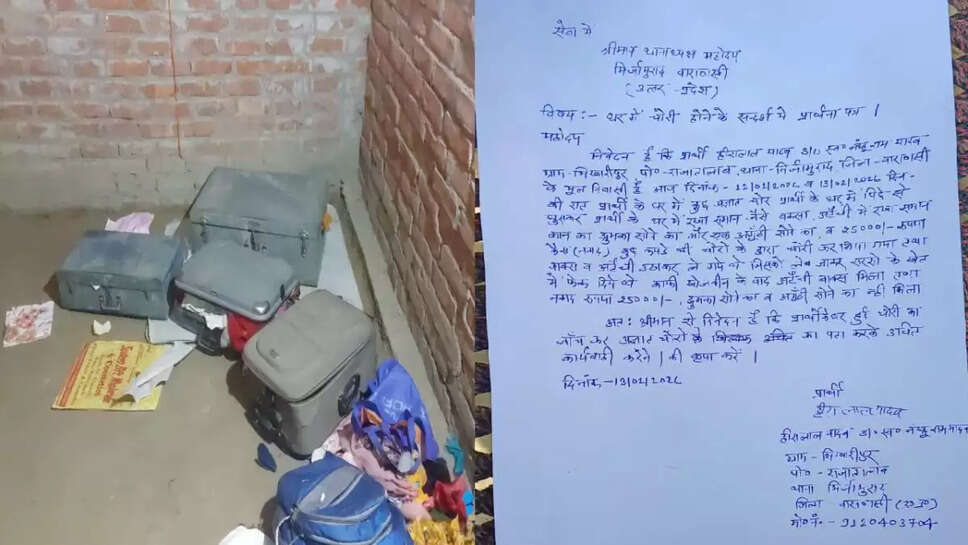 सेवा में
श्रीमान थानाध्यक्ष महोदय
मिर्जामुराद वाराणसी
(उत्तर-प्रदेश)
विषय:- घर में चोरी होने के सन्दर्भ में प्रार्थना पत्र ।
महोदय
निवेदन है कि प्रार्थी हीरालाल यादव S/O स्व० नन्हकूराम यादव
ग्राम-भिखारीपुर पो०-राजातालाब थाना-मिर्जामुराद जिला-वाराणसी
के मूल निवासी हूँ आज दिनांक-12/02/2026 व 13/02/2026
की रात प्रार्थी के घर में कुछ अज्ञात चोर प्रार्थी के घर में
घुसकर प्रार्थी के घर में रखा समान जैसे बक्सा, अटैची में रखा समान
कान का झुमका सोने का और एक अंगूठी सोने का, व 25000/- रूपया
कैश (नगद) कुछ कपड़े भी चोरों के द्वारा चोरी कर लिया गया तथा
बाक्स व अटैची उठाकर ले गये थे जिसको ले जाकर सरसों के खेत
में फेक दिये थे काफी खोजबीन के बाद अटैची बाक्स मिला तथा
नगद रूपया 25000/-, झुमका सोने का व अंगूठी सोने का नहीं मिला
अतः श्रीमान से निवेदन है कि प्रार्थी के घर हुई चोरी का
जाँच कर अज्ञात चोरों के का पता करके उचित
कार्यवाही करने की कृपा करें ।
दिनांक-13/02/2026
प्रार्थी
हीरालाल यादव
हीरालाल यादव S/O स्व० यादव
ग्राम-भिखारीपुर
पो०-राजातालाब
थाना मिर्जामुराद
जिला वाराणसी (उ०प्र०)
मो०नं०- 9120403704